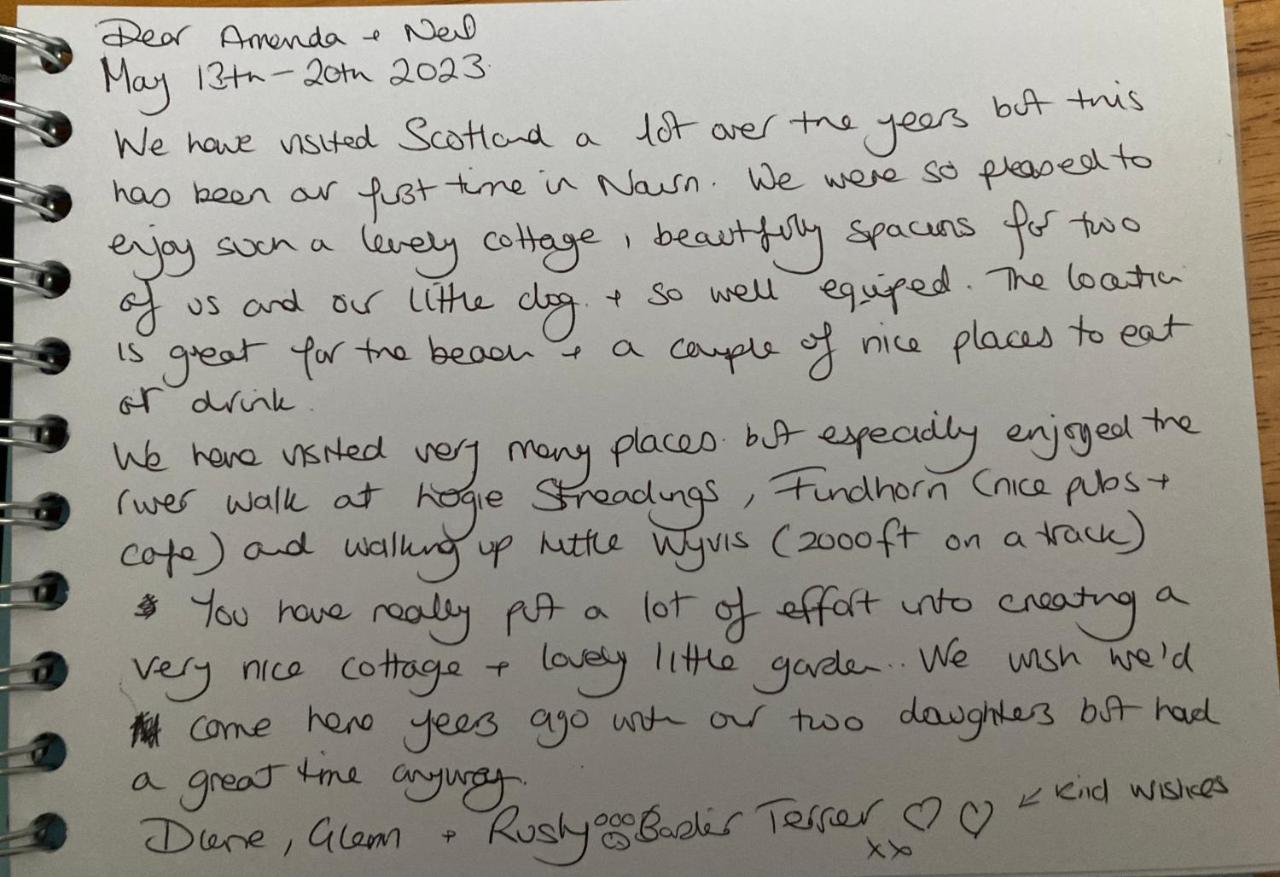 Dear Amanda + Neil
May 13th - 20th 2023.
We have visited Scotland a lot over the years but this
has been our first time in Nairn. We were so pleased to
enjoy such a lovely cottage, beautifully spacious for two
of us and our little dog. + so well equiped. The location
is great for the beach + a couple of nice places to eat
or drink.
We have visited very many places. but especially enjoyed the
river walk at Logie Steadings, Findhorn (nice pubs +
cafe) and walking up little Wyvis (2000ft on a track)
You have really put a lot of effort into creating a
very nice cottage + lovely little garden.. We wish we'd
come here years ago with our two daughters but had
a great time anyway.
Diane, Glenn + Rusty Border Terrier ♡ ♡ ↙ Kind wishes
xx